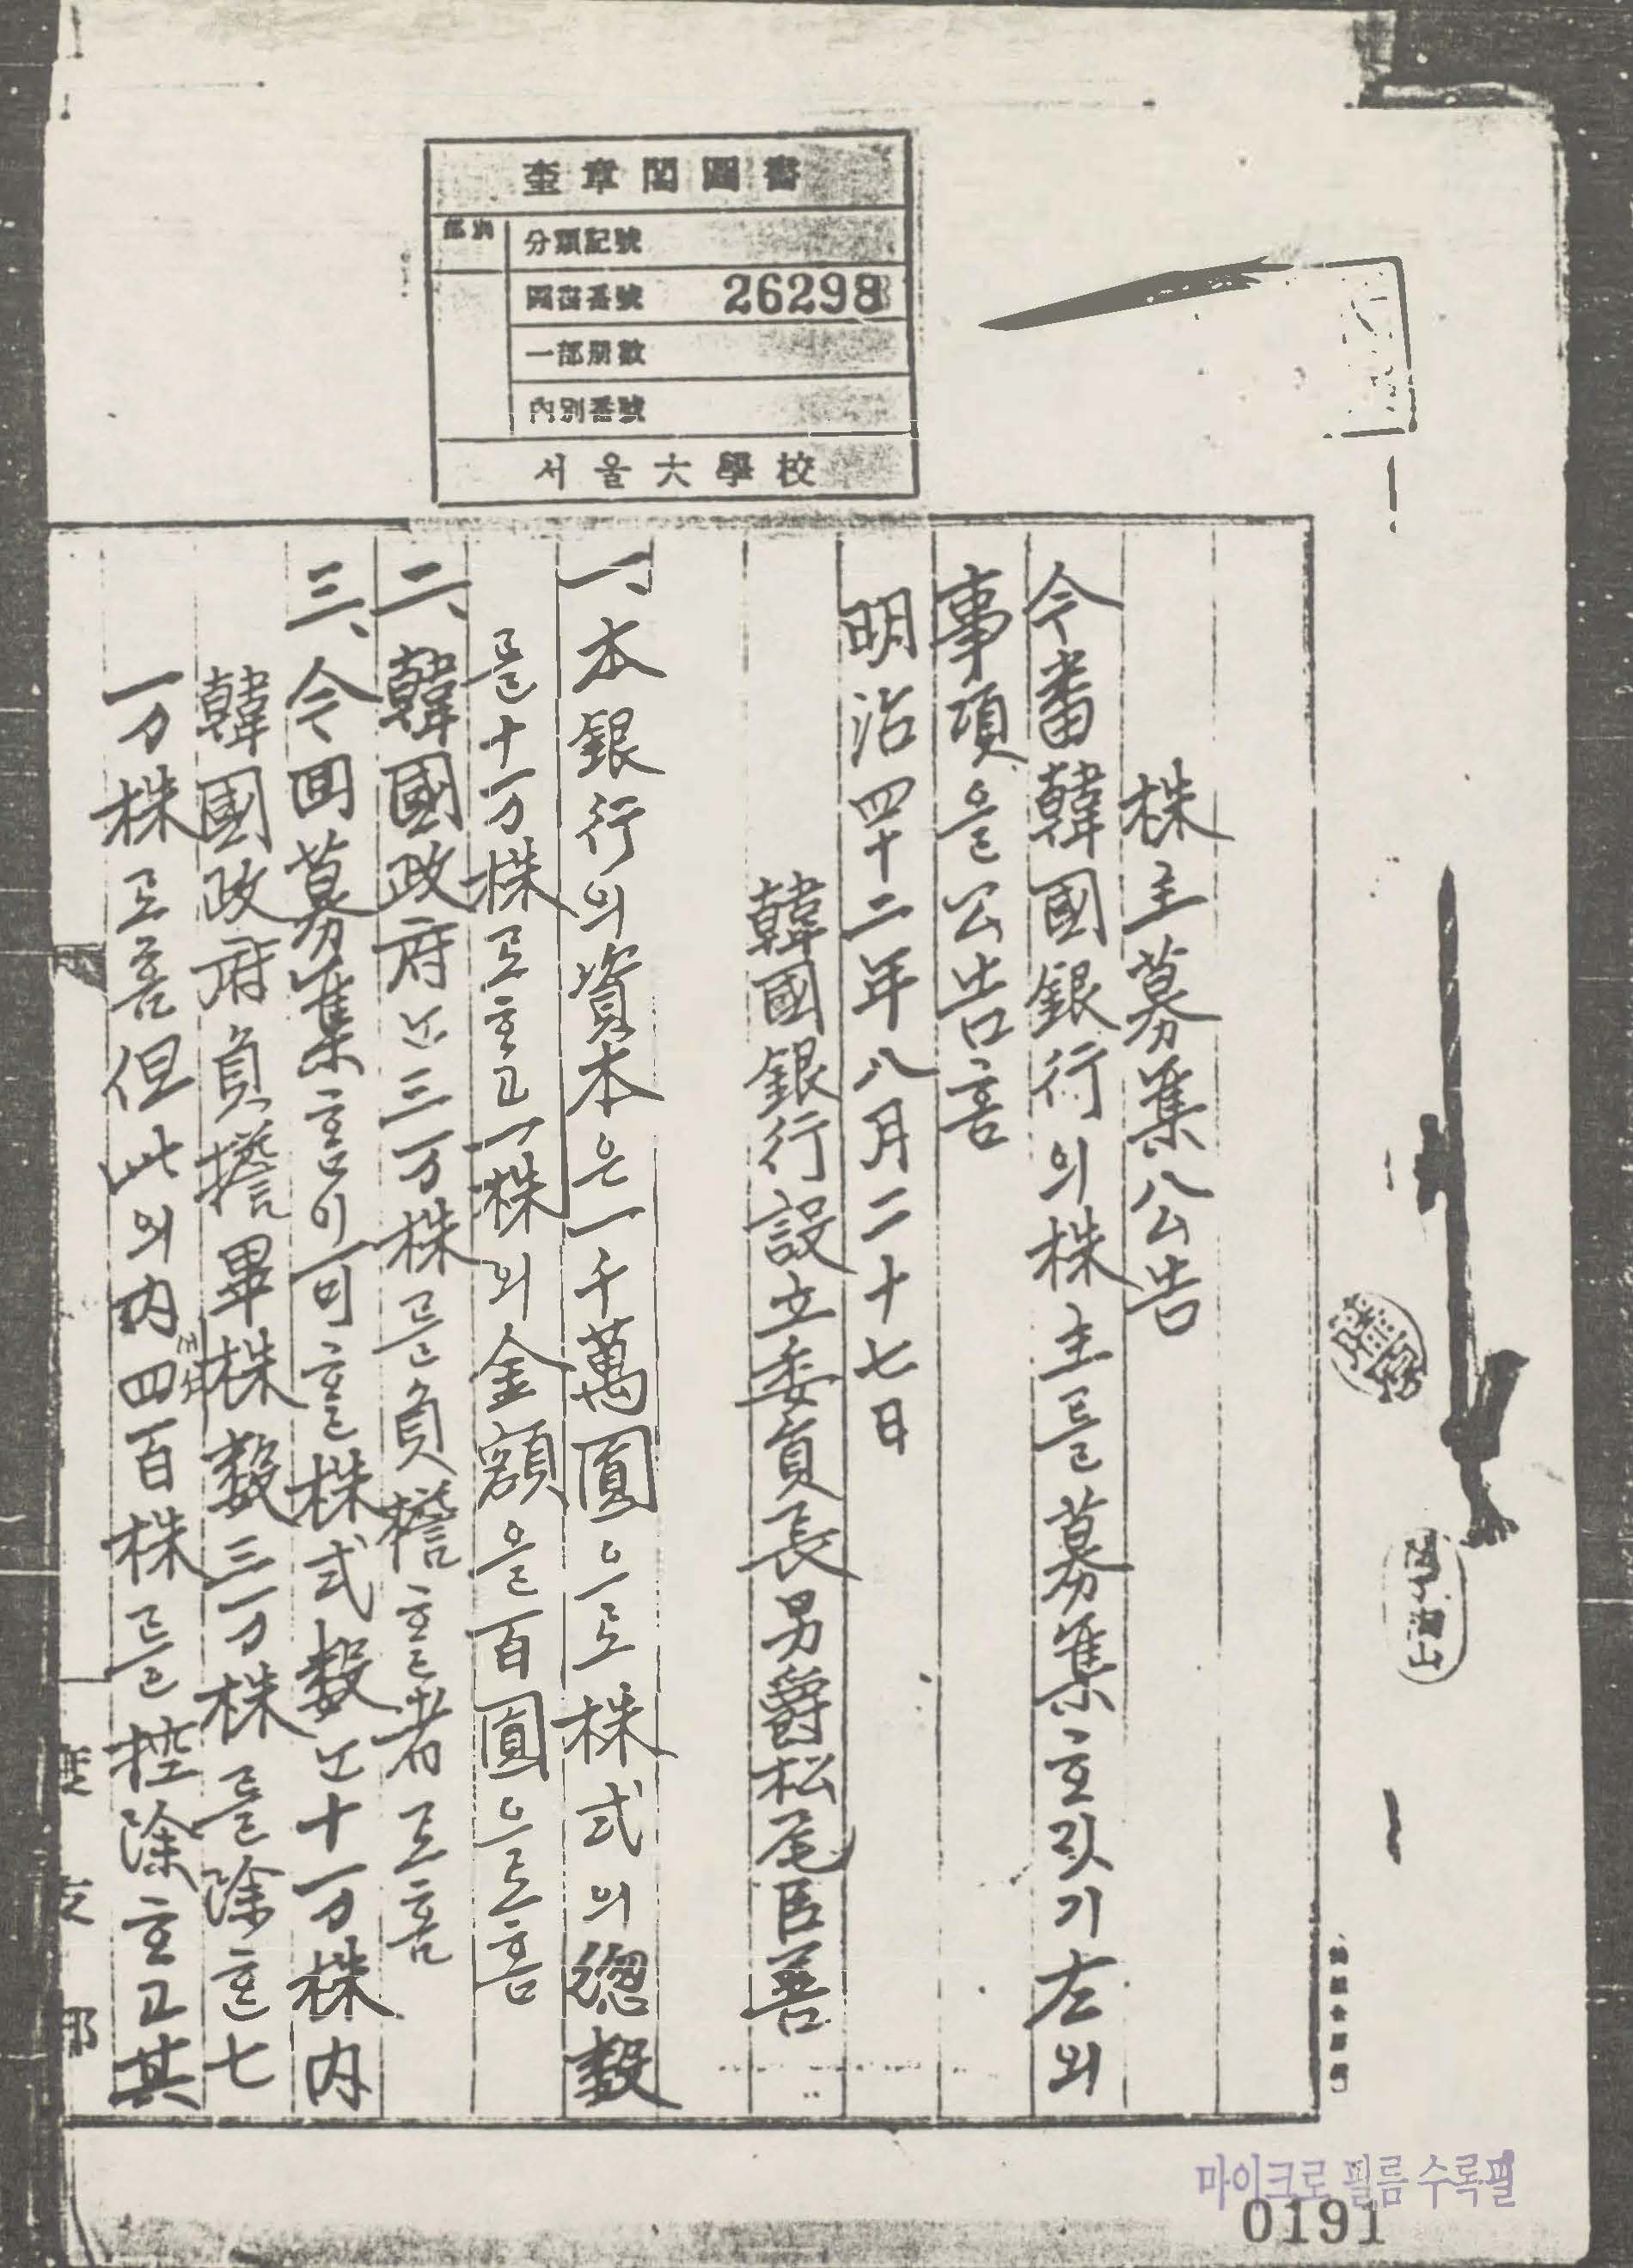 奎章閣圖書
部別
分類記號
圖書番號 26298
一部册數
內別番號
서울大學校
株主募集公告
今番韓國銀行의株主를募集ᄒᆞ깃기左의
事項을公告홈
明治四十二年八月二十七日
韓國銀行設立委員長男爵松尾臣善
一、本銀行의資本은一千萬圓으로株式의總數
를十万株로ᄒᆞ고一株의金額을百圓으로홈
二、韓國政府ᄂᆞᆫ三万株를負擔ᄒᆞᆯ者로홈
三、今回募集홈이可ᄒᆞᆯ株式數ᄂᆞᆫ十万株內
韓國政府負擔畢株數三万株를除ᄒᆞᆫ七
万株로홈但此의內四百株를控除ᄒᆞ고其
度支部
마이크로 필름 수록필
0191